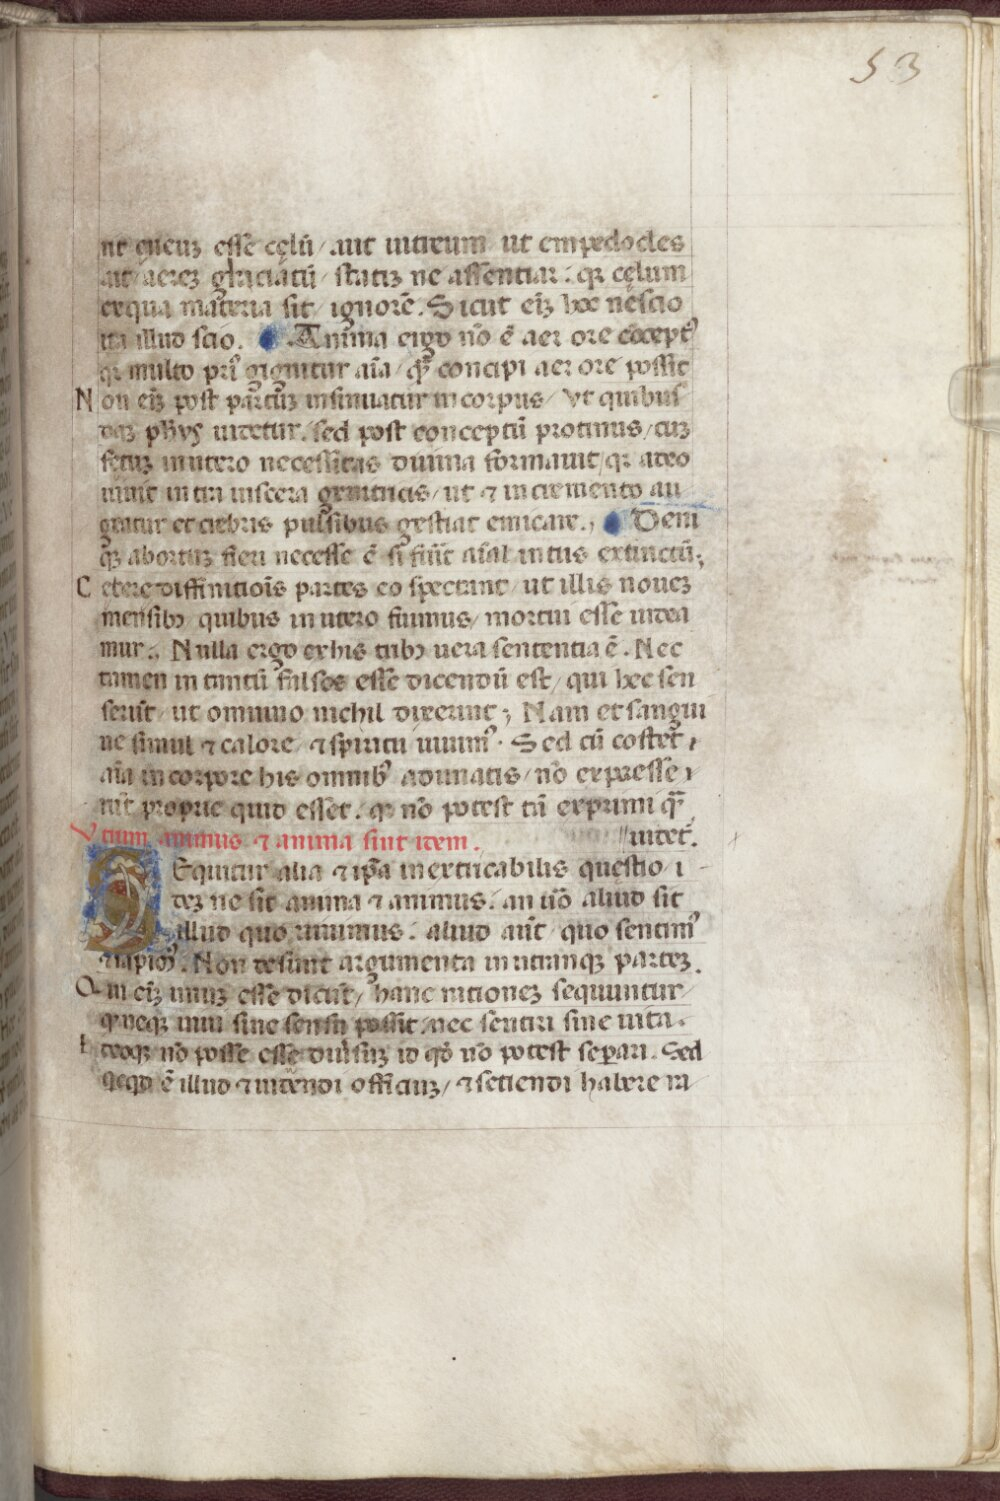 53
ut eneuꝫ esse cęlū / aut uitreum ut empedocles
ait / aereꝫ glaciatū / statiꝫ ne assentiar . qꝛ cęlum
ex qua materia sit / ignorē . Sicut eiꝫ hoc nescio
ita illud scio . Anima ergo nō ē aer ore cōcept᾽
qꝛ multo pri᾽ gignitur aīa / qꝫ concipi aer ore possit
Non eiꝫ post partuꝫ insinuatur in corpus / vt quibus
daꝫ phijs uidetur . sed post conceptū protinus / cuꝫ
fetuꝫ in utero necessitas diuina formauit / qꝛ adeo
uiuit intra uiscera genitricis / ut ⁊ incremento au
geatur et crebris pulsibus gestiat emicare . Deni
qꝫ abortuꝫ fieri necesse ē si fūit aīal intus extinctū ;
Cetere diffinitiois partes eo spectant / ut illis noueꝫ
mensibꝫ quibus in utero fuimus / mortui esse uidea
mur . Nulla ergo ex his tribꝫ uera sententia ē . Nec
tamen in tantū falsos esse dicendū est / qui hec sen
serūt / ut omnino nichil dixerint ; Nam et sangui
ne simul ⁊ calore / ⁊ spiritu uiuim᾽ . Sed cū costet /
aīa in corpore his omnib᾽ adunatis / nō expresse
rūt proprie quid esset . qꝛ nō potest tā exprimi qꝫ
Vtrum animus ⁊ anima sint idem . uidet᾽ .
SEquitur alia ⁊ ipsa inextricabilis questio i
deꝫ ne sit anima ⁊ animus . an uō aliud sit
illud quo uiuimus . aliud aūt quo sentim᾽
⁊ sapim᾽ . Non desunt argumenta in utranqꝫ parteꝫ .
Qui eiꝫ unuꝫ esse dicūt / hanc rationeꝫ sequuntur
qꝫ neqꝫ uiui sine sensu possit / nec sentiri sine uita .
Ideoqꝫ nō posse esse diuisuꝫ id qđ nō potest separi . Sed
qcqd ē illud ⁊ uiuendi officiuꝫ / ⁊ setiendi habere ra